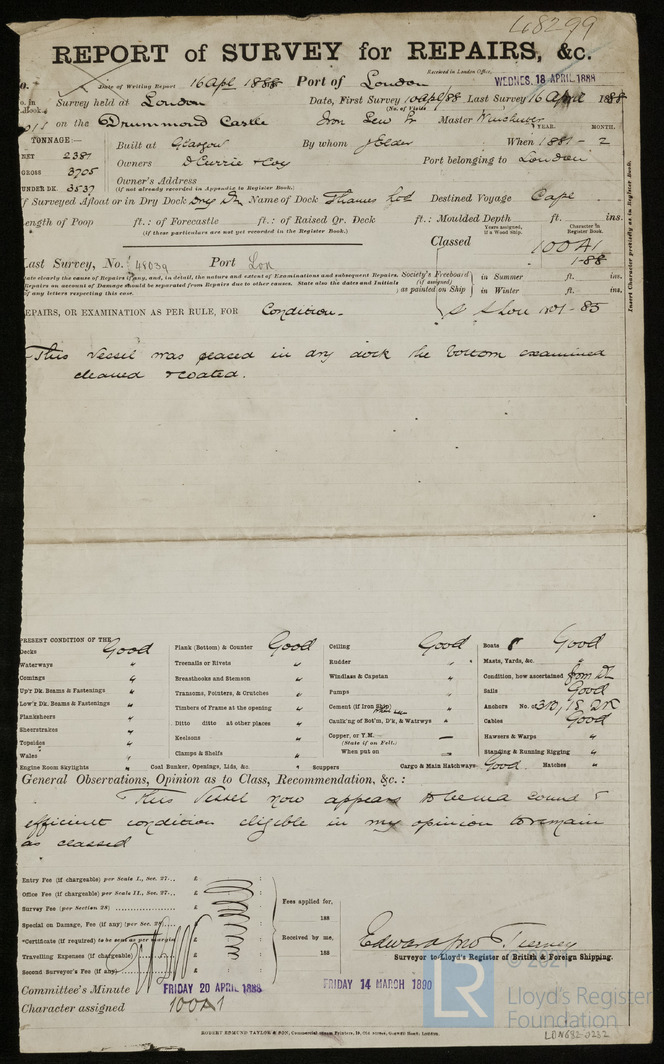 48299
REPORT of SURVEY for REPAIRS, &c.
Received in London Office,
Date of Writing Report 16 Apl 1888 Port of London WEDNES. 18 APRIL 1888
Survey held at London Date, First Survey 10 Apl/88 Last Survey 16 April 1888
(No. of Visits)
on the Drummond Castle Iron Scw Master Winchester YEAR. MONTH.
TONNAGE
NET 2387
GROSS 3705
UNDER DK 3537
Built at Glasgow By whom J Elder When 1881 - 2
Owners D Currie & Coy Port belonging to London
Owner's Address
(If not already recorded in Appendix to Register Book.)
If Surveyed Afloat or in Dry Dock Dry Dk Name of Dock Thames Destined Voyage Cape
Length of Poop ft.: of Forecastle ft.: of Raised Qr. Deck ft.: Moulded Depth ft. ins.
(If these particulars are not yet recorded in the Register Book.)
Years assigned, if a Wood Ship. Character in Register Book.
Classed 100A1
1-88
Last Survey, No. 48039 Port Lon
State clearly the cause of Repairs if any, and, in detail, the nature and extent of Examinations and subsequent Repairs.
Repairs on account of Damage should be separated from Repairs due to other causes. State also the dates and Initials
of any letters respecting this case.
Society's Freeboard (if assigned) as painted on Ship
in Summer ft. ins.
in Winter ft. ins.
Insert Character precisely as in Register Book.
REPAIRS, OR EXAMINATION AS PER RULE, FOR Condition.
This Vessel was placed in dry dock the bottom examined
cleaned & coated.
PRESENT CONDITION OF THE
Decks Good
Waterways "
Comings "
Up'r Dk. Beams & Fastenings "
Low'r Dk. Beams & Fastenings "
Planksheers "
Sheerstrakes "
Topsides "
Wales "
Engine Room Skylights "
Plank (Bottom) & Counter Good
Treenails or Rivets "
Breasthooks and Stemson "
Transoms, Pointers, & Crutches "
Timbers of Frame at the opening "
Ditto ditto at other places "
Keelsons "
Clamps & Shelfs "
Coal Bunker, Openings, Lids, &c. "
Ceiling Good
Rudder "
Windlass & Capstan "
Pumps "
Cement (if Iron Ship)
Caulk'ng of Bot'm, D'k, & Watrwys "
Copper, or Y.M. —
(State if on Felt.)
When put on —
Scuppers " Cargo & Main Hatchways Good Hatches "
Boats 8 Good
Masts, Yards, &c. "
Condition, how ascertained from Dk
Sails Good
Anchors No. of 3
Cables Good
Hawsers & Warps "
Standing & Running Rigging "
General Observations, Opinion as to Class, Recommendation, &c. :
This Vessel now appears to be in a sound &
efficient condition eligible in my opinion to remain
as classed
Entry Fee (if chargeable) per Scale I., Sec. 27.. £ : :
Office Fee (if chargeable) per Scale II., Sec. 27.. £ : :
Survey Fee (per Section 28) £ : :
Special on Damage, Fee (if any) (per Sec. 28) £ : :
*Certificate (if required) to be sent as per margin £ : :
Travelling Expenses (if chargeable) £ : :
Second Surveyor's Fee (if any) £ : :
Fees applied for,
188
Received by me,
188
Edward Jno Tierney
Surveyor to Lloyd's Register of British & Foreign Shipping.
Committee's Minute FRIDAY 20 APRIL 1888 FRIDAY 14 MARCH 1890
Character assigned 100A1
ROBERT EDMUND TAYLOR & SON, Commercial Steam Printers, 19, Old Street, Goswell Road, London.
© 2021
LR
Lloyd's Register
Foundation
LON682-0232